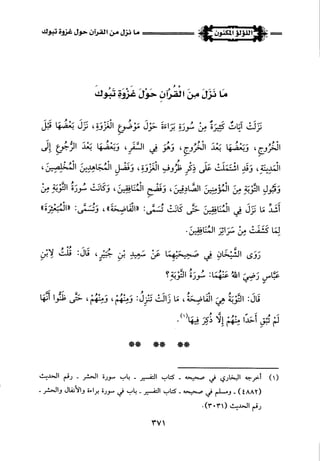 ما نزل من القرآن حول غزوة تبوك
اللؤلؤ المكنون
مَا نَزَلَ مِنَ القُرْآنِ حَوْلَ غَزْوَةِ تَبُوكَ
نَزَلَتْ آيَاتٌ كَثِيرَةٌ مِنْ سُورَةِ بَرَاءَة حَوْلَ مَوْضُوعِ الغَزْوَةِ، نَزَلَ بَعْضُهَا قَبْلَ
الخُرُوجِ، وَبَعْضُهَا بَعْدَ الخُرُوجِ، وَهُوَ فِي السَّفَرِ، وَبَعْضُهَا بَعْدَ الرُّجُوعِ إِلَى
المَدِينَةِ، وَقَدِ اشْتَمَلَتْ عَلَى ذِكْرِ ظُرُوفِ الغَزْوَةِ، وَفَضْلِ المُجَاهِدِينَ المُخْلِصِينَ،
وَقَبُولِ التَّوْبَةِ مِنَ المُؤْمِنِينَ الصَّادِقِينَ، وَفَضْحِ المُنَافِقِينَ، وَكَانَتْ سُورَةُ التَّوْبَةِ مِنْ
أَشَدِّ مَا نَزَلَ فِي المُنَافِقِينَ حَتَّى كَانَتْ تُسَمَّى: «الفَاضِحَةُ»، وَتُسَمَّى: «المُبَعْثِرَةُ»
لِمَا كَشَفَتْ مِنْ سَرَائِرِ المُنَافِقِينَ.
رَوَى الشَّيْخَانِ فِي صَحِيحَيْهِمَا عَنْ سَعِيدِ بْنِ جُبَيْرٍ، قَالَ: قُلْتُ لِابْنِ
عَبَّاسٍ رَضِيَ اللهُ عَنْهُمَا: سُورَةُ التَّوْبَةِ؟
قَالَ: التَّوْبَةُ هِيَ الفَاضِحَةُ، مَا زَالَتْ تَنْزِلُ: وَمِنْهُمْ، وَمِنْهُمْ، حَتَّى ظَنُّوا أَنَّهَا
لَمْ تُبْقِ أَحَدًا مِنْهُمْ إِلَّا ذُكِرَ فِيهَا(١).
** ** **
(١) أخرجه البخاري في صحيحه - كتاب التفسير - باب سورة الحشر - رقم الحديث
(٤٨٨٢) - ومسلم في صحيحه - كتاب التفسير - باب في سورة براءة والأنفال والحشر -
رقم الحديث (٣٠٣١).
٣٧١